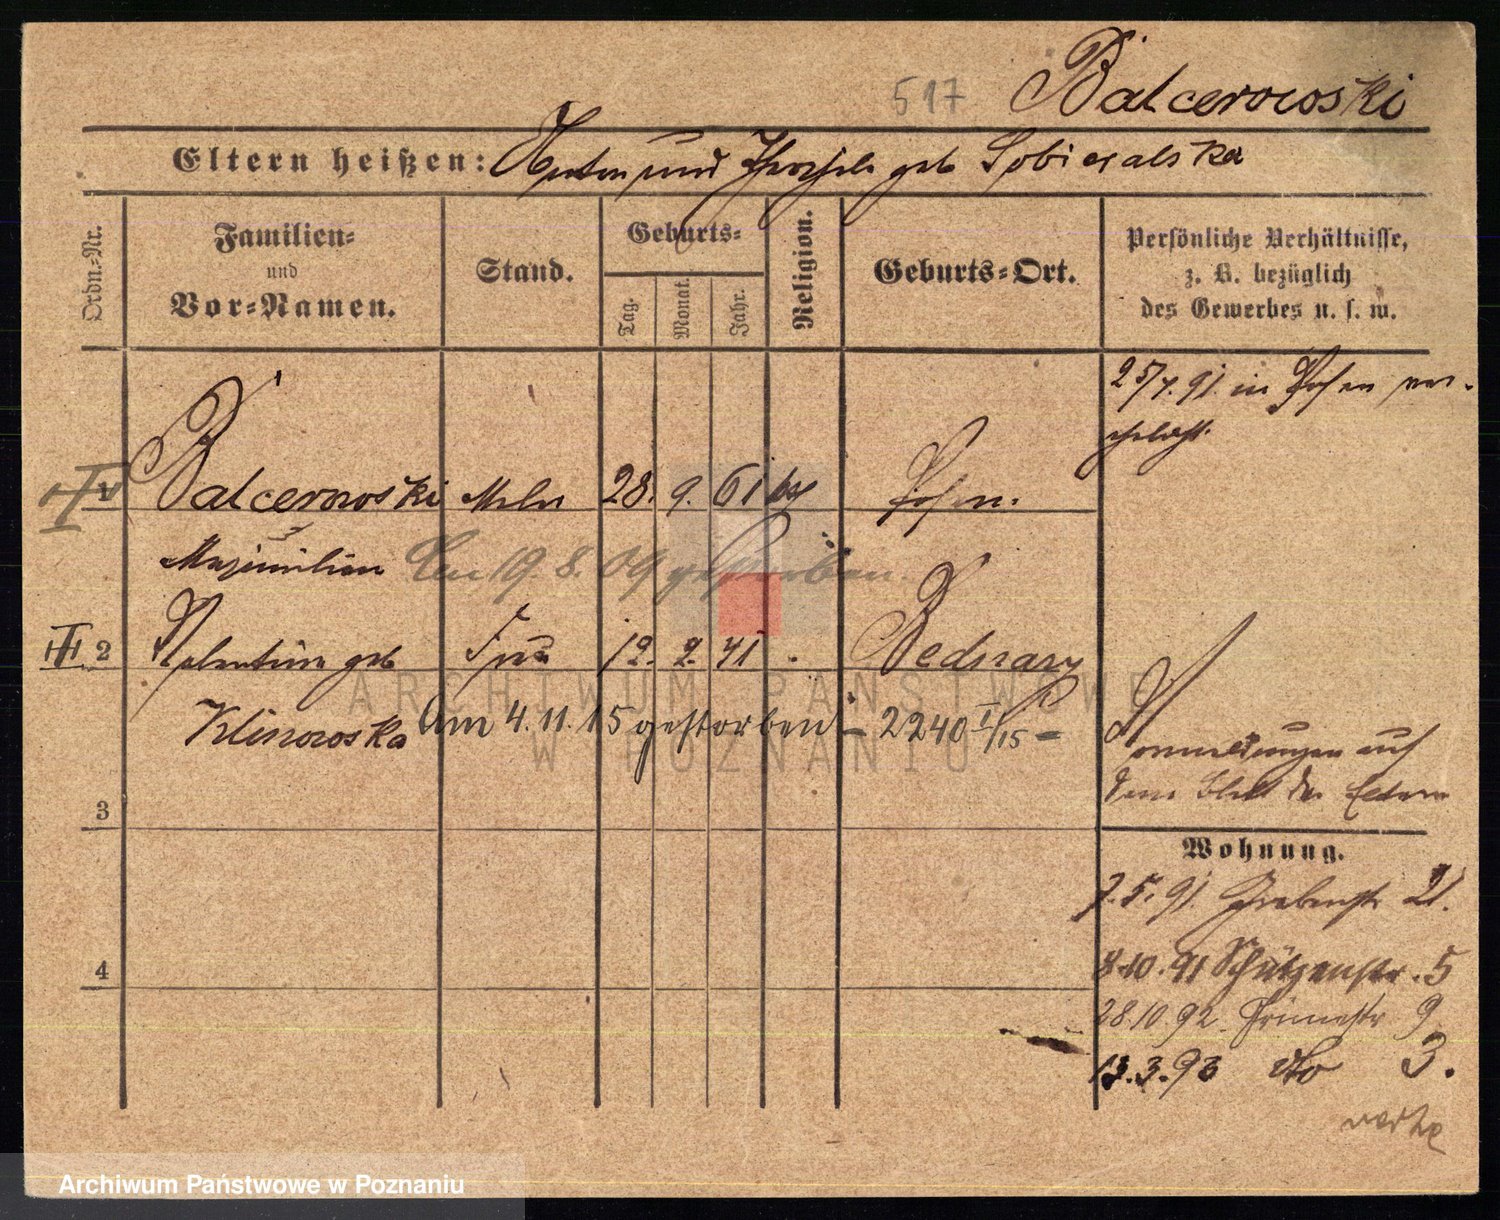 517 Balcerowoski
Eltern heißen: Anton und geb Sobieralska
Ordn.-Nr.
Familien-
und
Vor-Namen.
Stand.
Geburts-
Tag.
Monat.
Jahr.
Religion.
Geburts-Ort.
Persönliche Verhältnisse,
z. B. bezüglich
des Gewerbes u. s. w.
25/7. 91. in Posen ver-
ehelicht.
1 Balcerowoski Maler 28. 9. 61 Posen.
Maximilian
Am 19. 8. 09 gestorben.
2 Valentine geb Frau 12. 2. 41 Bednary
Klinowoska
Am 4. 11. 15 gestorben - 2240 I/15 -
auf
3
4
Wohnung.
7. 5. 91. Grabenstr 21.
8.10.91 Schützenstr. 5
28.10.92. 9
13.3.93 dto 3.
verte
ARCHIWUM PAŃSTWOWE
W POZNANIU
Archiwum Państwowe w Poznaniu